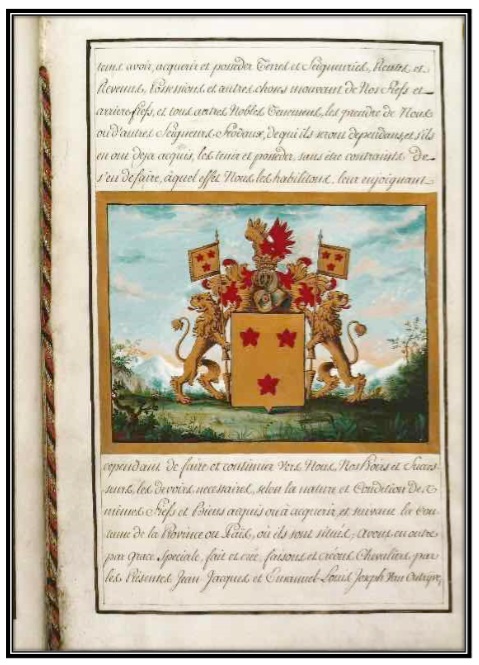 tems avoir, acquerir et posseder Terres et Seigneuries, Rentes et
Revenus, Possessions et autres choses mouvant de Nos Fiefs et
arriere-fiefs, et tous autres Nobles Tenemens, les prendre de Nous
ou d'autres Seigneurs Feodaux, de qui ils seront dependans, et s'ils
en ont deja acquis, les tenir et posseder, sans être contraints de
s'en defaire, à quel effet Nous les habilitons, leur enjoignant
cependant de faire et continuer vers Nous, Nos Hoirs et Succes
seurs, les devoirs necessaires, selon la nature et Condition des
mêmes Fiefs et Biens acquis ou à acquerir, et suivant la Cou
tume de la Province ou Païs, où ils sont situés; avons en outre
par grace Speciale, fait et créé, faisons et créons Chevaliers par
les Présentes Jean Jacques et Emanuel Louis Joseph Van